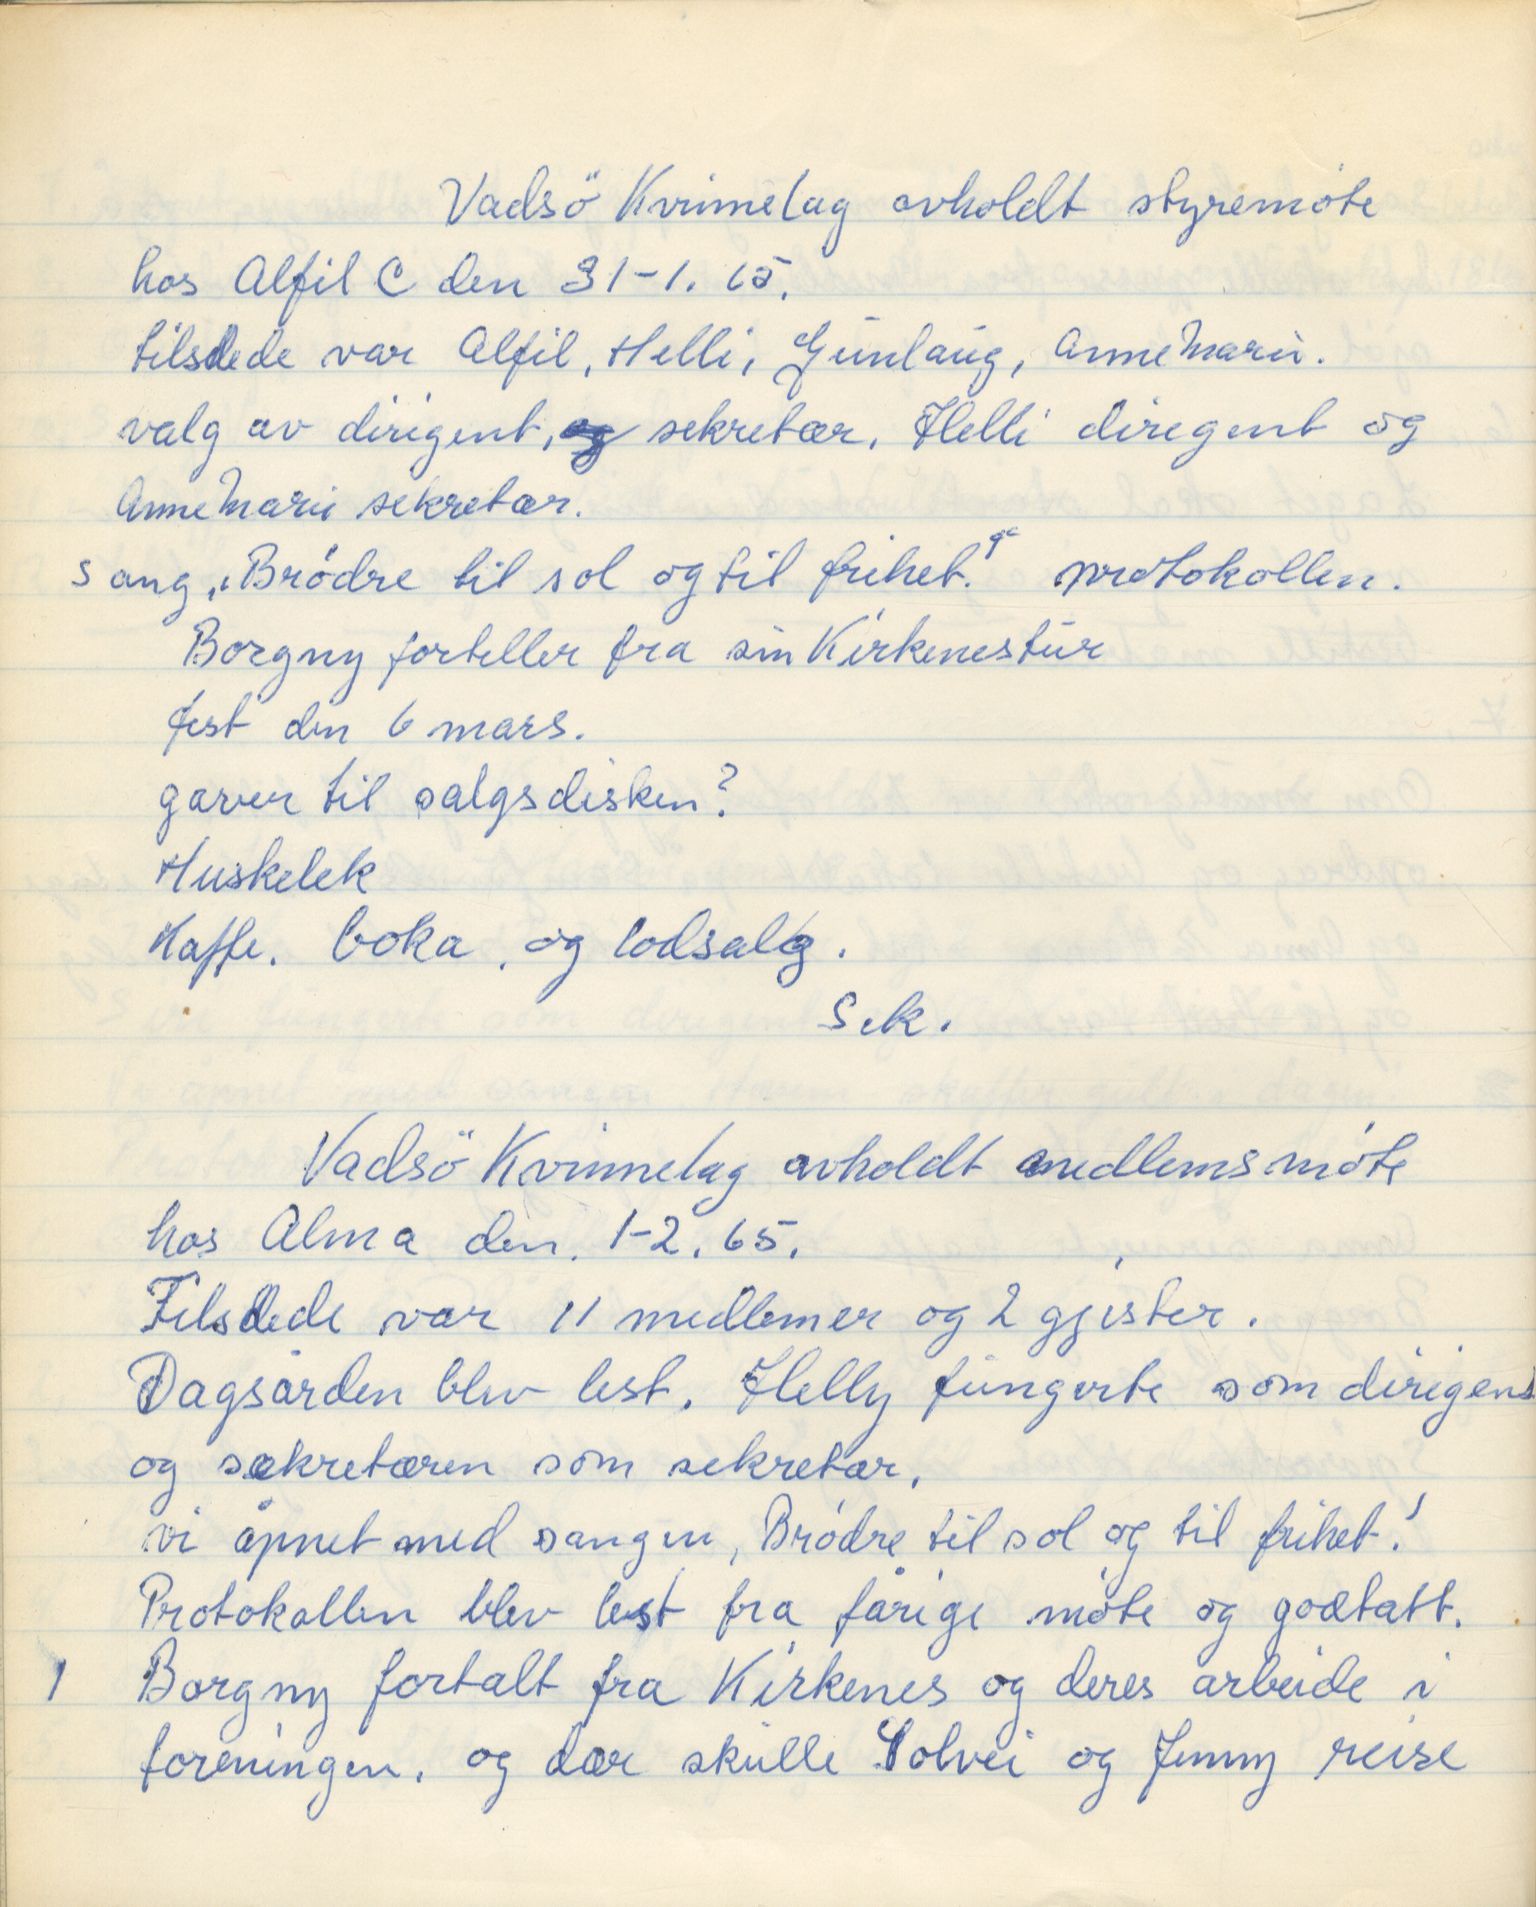 Vadsö Kvinnelag avholdt styremöte
hos Alfil C den 31-1. 65.
tilstede var Alfil, Helli, Gunlaug, AnneMarie.
valg av dirigent, og sekretær. Helli diregent og
AnneMarie sekretær.
Sang, "Brödre til sol og til frihet." protokollen.
Borgny forteller fra sin Kirkenestur
fest den 6 mars.
gaver til salgsdisken?
Huskelek
Kaffe. boka, og lodsalg.
Sek.
Vadsö Kvinnelag avholdt medlemsmöte
hos Alma den. 1-2. 65.
Tilstede var 11 medlemer og 2 gjester.
Dagsorden blev lest. Helly fungerte som dirigent
og sekretæren som sekretær.
vi åpnet med sangen, Brödre til sol og til frihet!
Protokollen blev lest fra forige möte og godtatt.
1 Borgny fortalt fra Kirkenes og deres arbeide i
foreningen. og dær skulle Solvei og Jenny reise